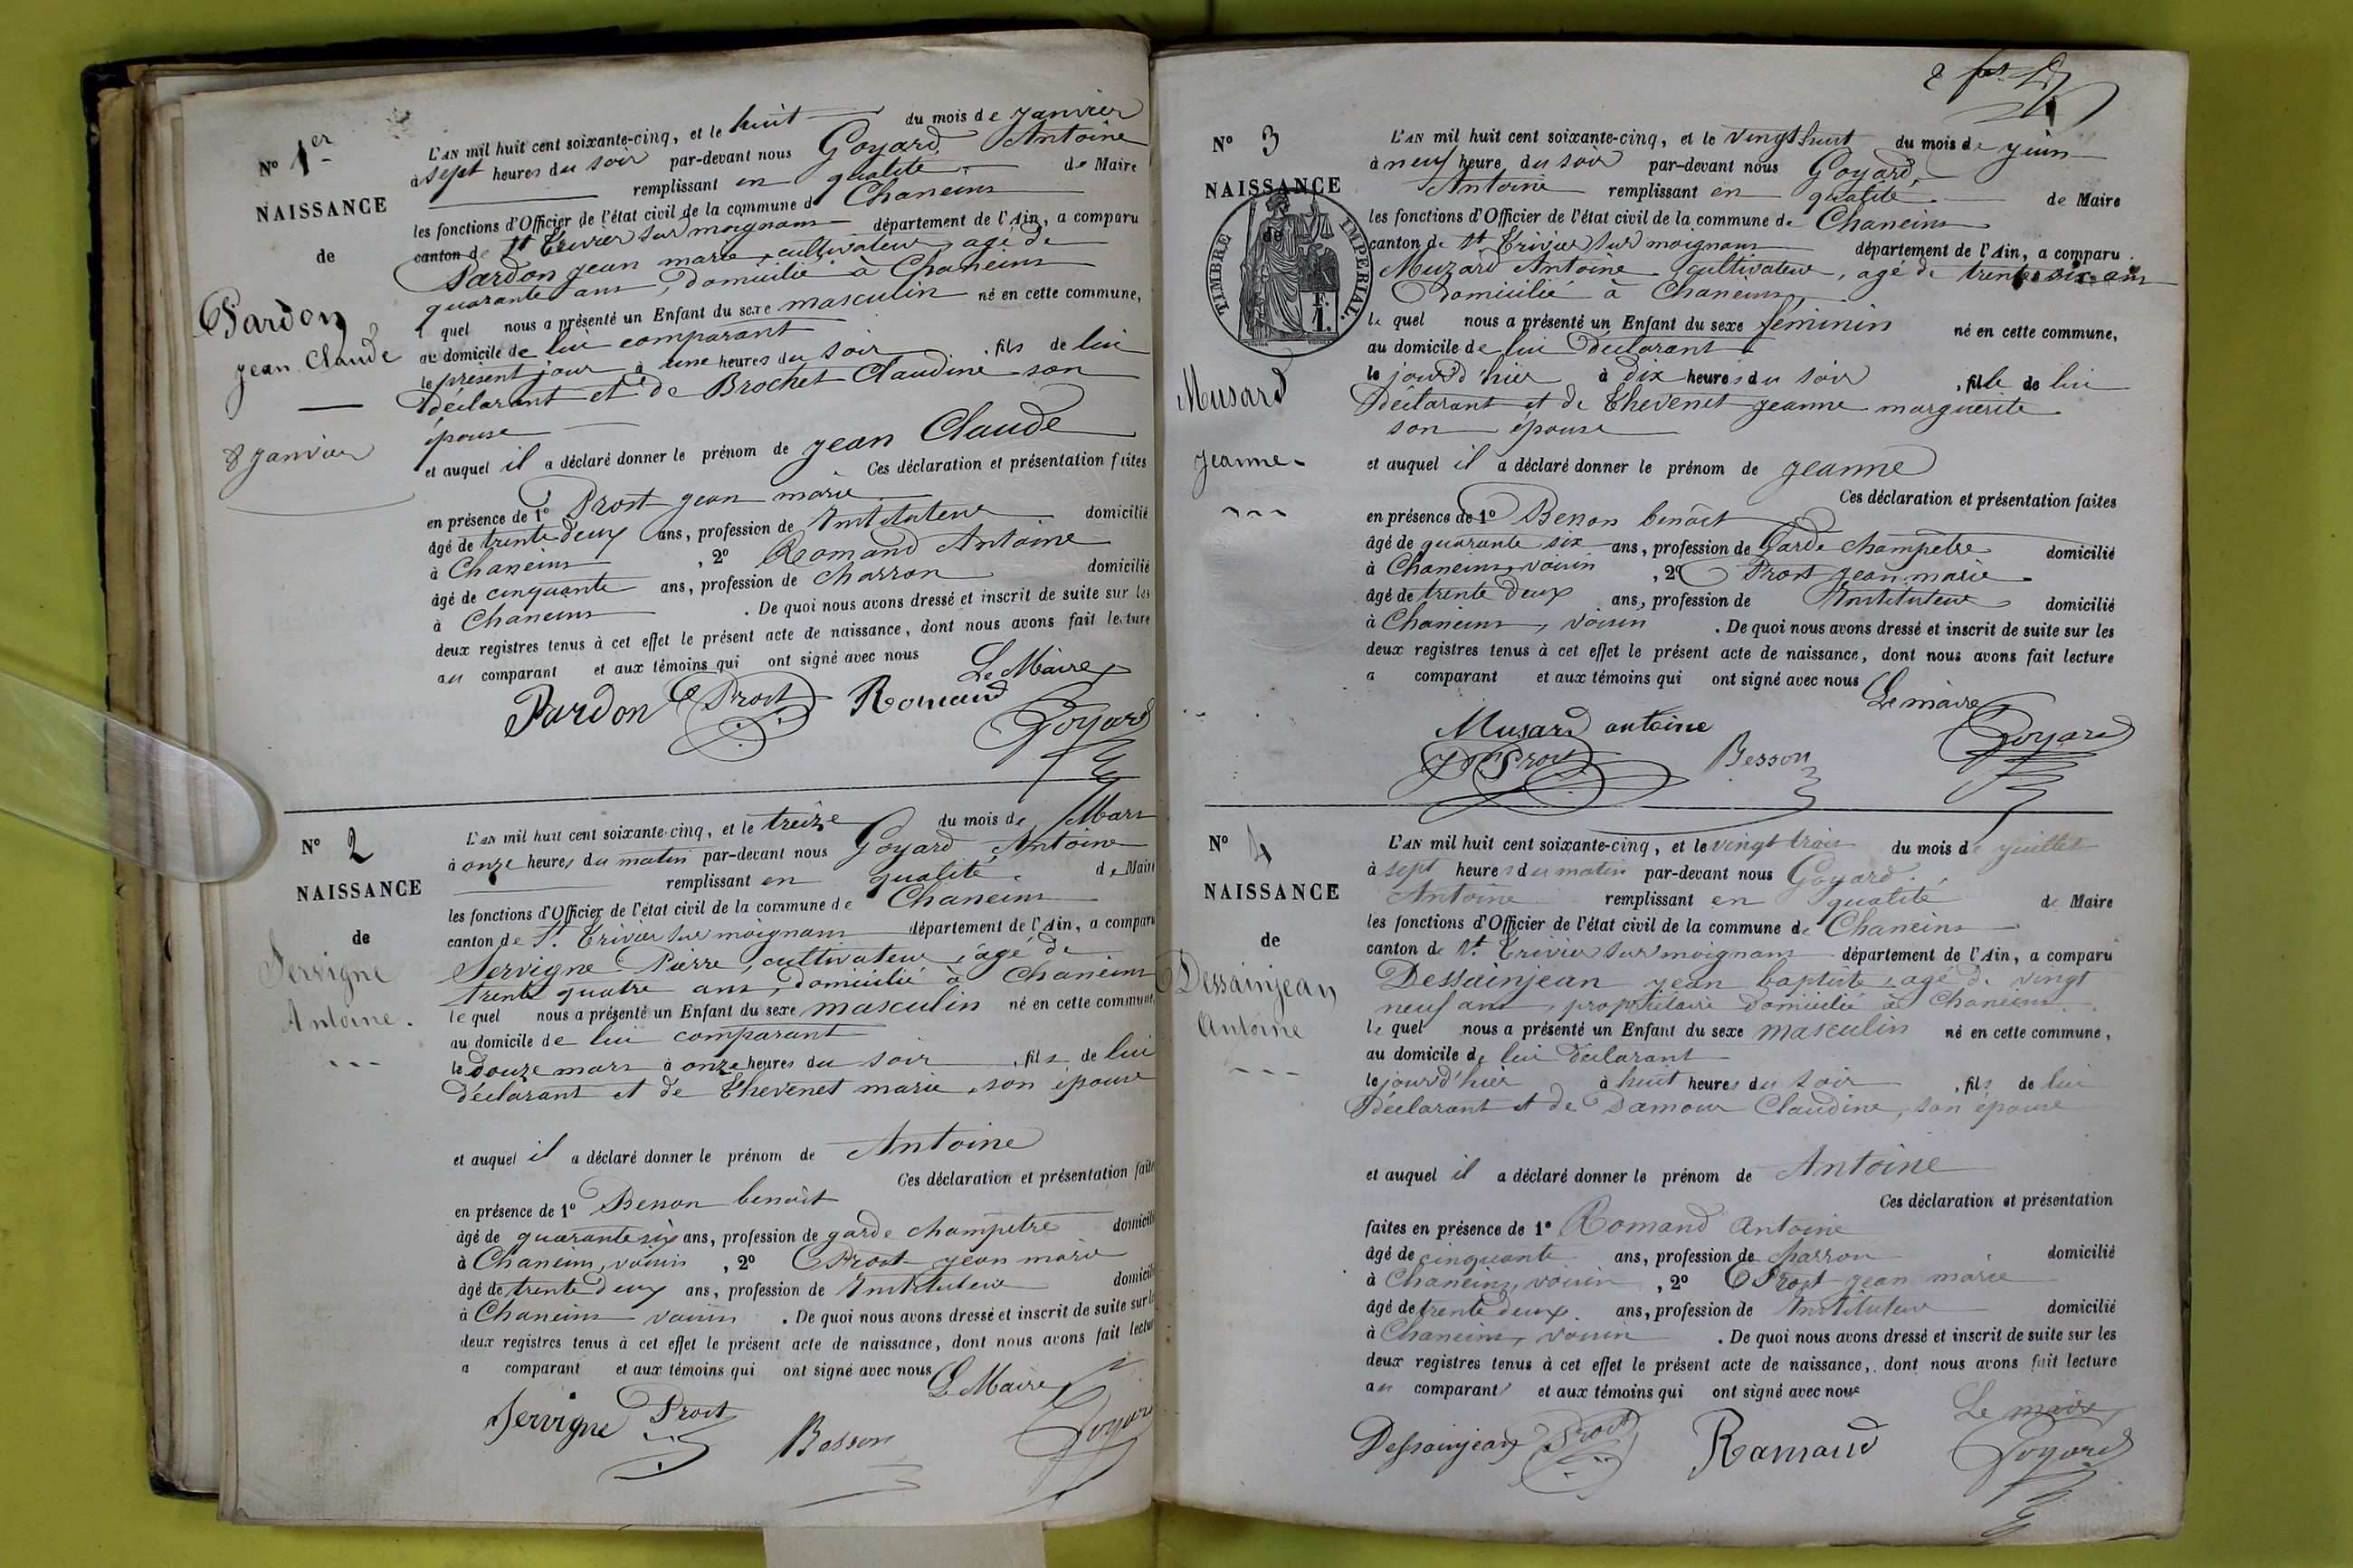 No 1er
NAISSANCE
de
Pardon
jean Claude
8 janvier
L'AN mil huit cent soixante-cinq, et le huit du mois de janvier
à sept heures du soir par-devant nous Goyard Antoine
remplissant en qualité de Maire
les fonctions d'Officier de l'état civil de la commune de Chaneins
canton de St Trivier sur moignans département de l'Ain, a comparu
Pardon jean marie, cultivateur, agé de
quarante ans, domicilié à Chaneins
lequel nous a présenté un Enfant du sexe masculin né en cette commune,
au domicile de lui comparant
le présent jour à une heures du soir, fils de lui
déclarant et de Brochet Claudine son
épouse
et auquel il a déclaré donner le prénom de jean Claude
Ces déclaration et présentation faites
en présence de 1º Prost jean marie
âgé de trente deux ans, profession de Instituteur domicilié
à Chaneins, 2º Romand Antoine
âgé de cinquante ans, profession de charron domicilié
à Chaneins. De quoi nous avons dressé et inscrit de suite sur les
deux registres tenus à cet effet le présent acte de naissance, dont nous avons fait lecture
au comparant et aux témoins qui ont signé avec nous
Le Maire
Pardon Prost Romand
Goyard
No 2
NAISSANCE
de
Servigne
Antoine.
L'AN mil huit cent soixante-cinq, et le treize du mois de Mars
à onze heures du matin par-devant nous Goyard Antoine
remplissant en qualité de Maire
les fonctions d'Officier de l'état civil de la commune de Chaneins
canton de St. Trivier sur moignans département de l'Ain, a comparu
Servigne Pierre, cultivateur, âgé de
trente quatre ans, domicilié à Chaneins
lequel nous a présenté un Enfant du sexe masculin né en cette commune
au domicile de lui comparant
le douze mars à onze heures du soir, fils de lui
déclarant et de Thevenet marie, son épouse
et auquel il a déclaré donner le prénom de Antoine
Ces déclaration et présentation faites
en présence de 1º Besson benoît
âgé de quarante six ans, profession de garde champetre domicilié
à Chaneins, voisin, 2º Prost jean marie
âgé de trente deux ans, profession de Instituteur domicilié
à Chaneins voisin. De quoi nous avons dressé et inscrit de suite sur les
deux registres tenus à cet effet le présent acte de naissance, dont nous avons fait lecture
a comparant et aux témoins qui ont signé avec nous
Le Maire
Servigne Prost Besson Goyard
No 3
NAISSANCE
de
TIMBRE IMPERIAL.
F.
1.
Musard
jeanne
L'AN mil huit cent soixante-cinq, et le vingt huit du mois de juin
à neuf heure du soir par-devant nous Goyard,
Antoine remplissant en qualité de Maire
les fonctions d'Officier de l'état civil de la commune de Chaneins
canton de St Trivier sur moignans département de l'Ain, a comparu
Muzard Antoine cultivateur, agé de trente six ans
Domicilié à Chaneins,
lequel nous a présenté un Enfant du sexe féminin né en cette commune,
au domicile de lui Déclarant
le jour d'hier à dix heures du soir, fille de lui
Déclarant et de Thevenet jeanne marguerite
son épouse
et auquel il a déclaré donner le prénom de jeanne
Ces déclaration et présentation faites
en présence de 1º Besson benoit
âgé de quarante six ans, profession de Garde champetre domicilié
à Chaneins, voisin, 2º Prost jean marie
âgé de trente deux ans, profession de Instituteur domicilié
à Chaneins, voisin. De quoi nous avons dressé et inscrit de suite sur les
deux registres tenus à cet effet le présent acte de naissance, dont nous avons fait lecture
a comparant et aux témoins qui ont signé avec nous
Le maire
Musard antoine
Prost Besson Goyard
No 4
NAISSANCE
de
Dessainjean
Antoine
L'AN mil huit cent soixante-cinq, et le vingt trois du mois de juillet
à sept heures du matin par-devant nous Goyard
Antoine remplissant en qualité de Maire
les fonctions d'Officier de l'état civil de la commune de Chaneins
canton de St. Trivier sur moignans département de l'Ain, a comparu
Dessainjean jean baptiste, agé de vingt
neuf ans, propriétaire Domicilié à Chaneins
lequel nous a présenté un Enfant du sexe masculin né en cette commune,
au domicile de lui déclarant
le jour d'hier à huit heures du soir, fils de lui
Déclarant et de Damour Claudine, son épouse
et auquel il a déclaré donner le prénom de Antoine
Ces déclaration et présentation
faites en présence de 1º Romand Antoine
âgé de cinquante ans, profession de charron domicilié
à Chaneins, voisin, 2º Prost jean marie
âgé de trente deux ans, profession de Instituteur domicilié
à Chaneins, voisin. De quoi nous avons dressé et inscrit de suite sur les
deux registres tenus à cet effet le présent acte de naissance, dont nous avons fait lecture
au comparant et aux témoins qui ont signé avec nous
Le maire
Dessainjean Prost Romand Goyard